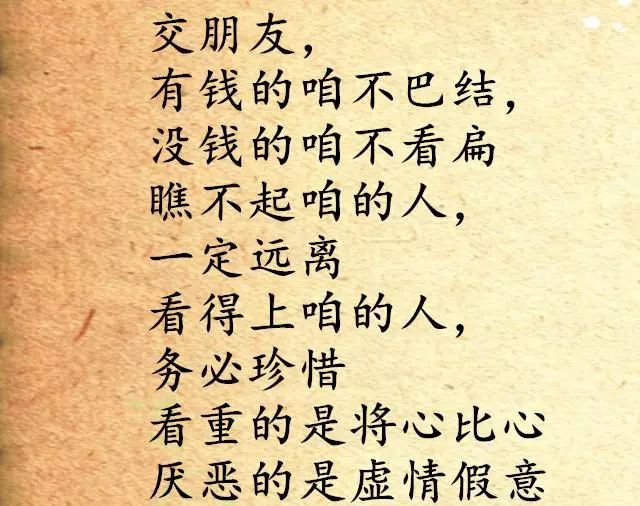 交朋友，
有钱的咱不巴结，
没钱的咱不看扁
瞧不起咱的人，
一定远离
看得上咱的人，
务必珍惜
看重的是将心比心
厌恶的是虚情假意